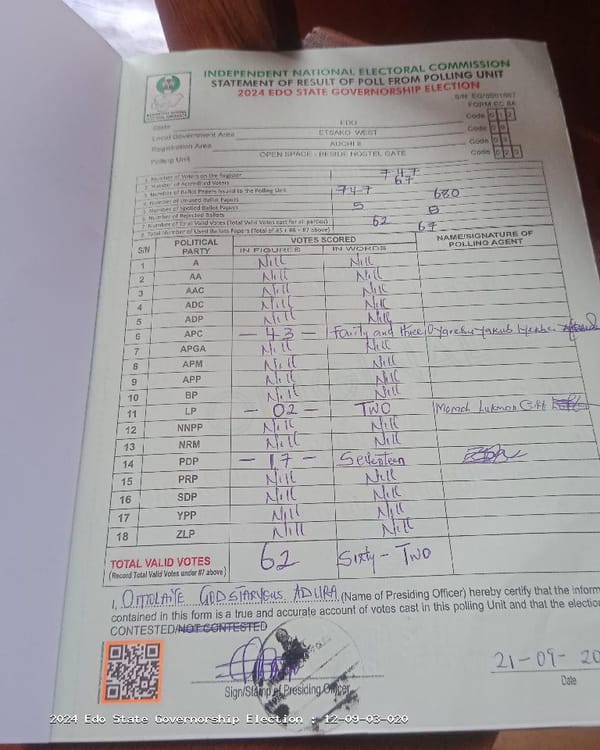 INDEPENDENT NATIONAL ELECTORAL COMMISSION
STATEMENT OF RESULT OF POLL FROM POLLING UNIT
2024 EDO STATE GOVERNORSHIP ELECTION
FORM EC 8A
State EDO Code 012
Local Government Area ETSAKO WEST Code
Registration Area AUCHI II Code
Polling Unit OPEN SPACE - BESIDE HOSTEL GATE Code 020
1. Number of Voters on the Register 747
2. Number of Accredited Voters 67
3. Number of Ballot Papers Issued to the Polling Unit 747
4. Number of Unused Ballot Papers 680
5. Number of Spoiled Ballot Papers
6. Number of Rejected Ballots
7. Number of Total Valid Votes (Total Valid Votes cast for all parties) 62
8. Total Number of Used Ballots Papers (Total of #5 + #6 + #7 above) 67
S/N POLITICAL PARTY VOTES SCORED IN FIGURES IN WORDS NAME/SIGNATURE OF POLLING AGENT
1 A Nill Nill
2 AA Nill Nill
3 AAC Nill Nill
4 ADC Nill Nill
5 ADP Nill Nill
6 APC - 43 - Fourty and three
7 APGA Nill Nill
8 APM Nill Nill
9 APP Nill Nill
10 BP Nill Nill
11 LP - 02 - TWO Momoh Lukman
12 NNPP Nill Nill
13 NRM Nill Nill
14 PDP - 17 - Seventeen
15 PRP Nill Nill
16 SDP Nill Nill
17 YPP Nill Nill
18 ZLP Nill Nill
TOTAL VALID VOTES 62 Sixty - Two
(Record Total Valid Votes under #7 above)
I, GODSTARVOUS ADURA (Name of Presiding Officer) hereby certify that the inform
contained in this form is a true and accurate account of votes cast in this polling Unit and that the election
CONTESTED/NOT CONTESTED
21-09-20
Sign/Stamp of Presiding Officer
Date
2024 Edo State Governorship Election : 12-09-03-020